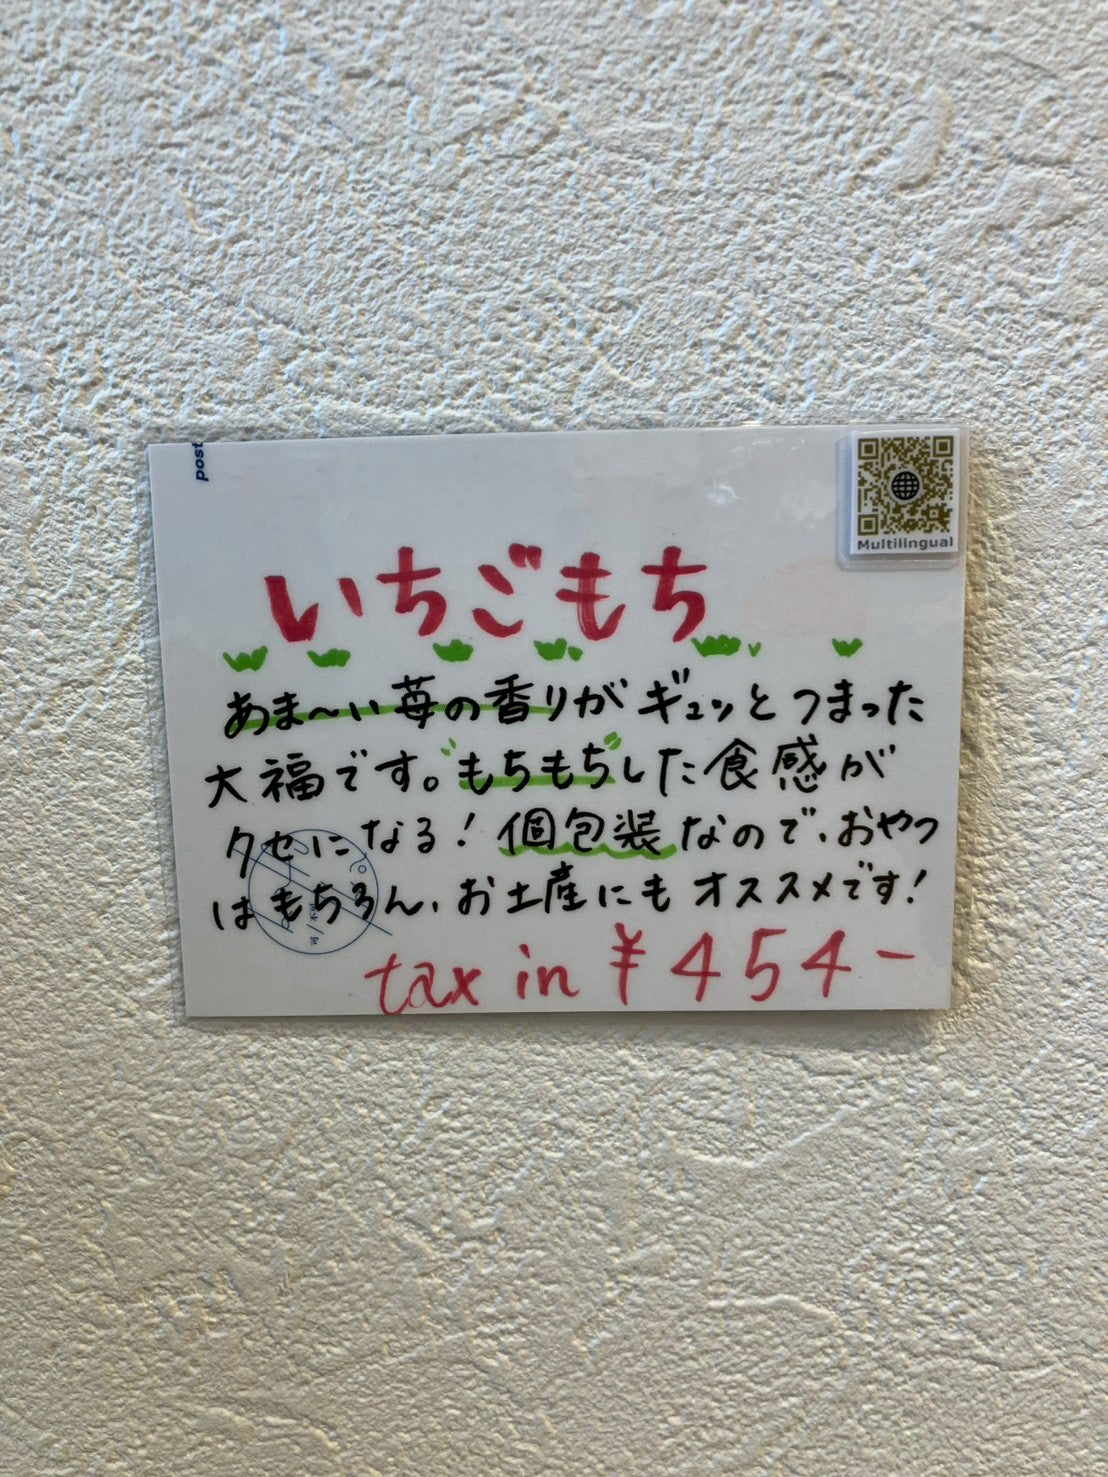 post
Multilingual
いちごもち
あま〜い苺の香りがギュッとつまった
大福です。"もちもち"した食感が
クセになる！個包装なので、おやつ
はもちろん、お土産にもオススメです！
tax in ¥454-